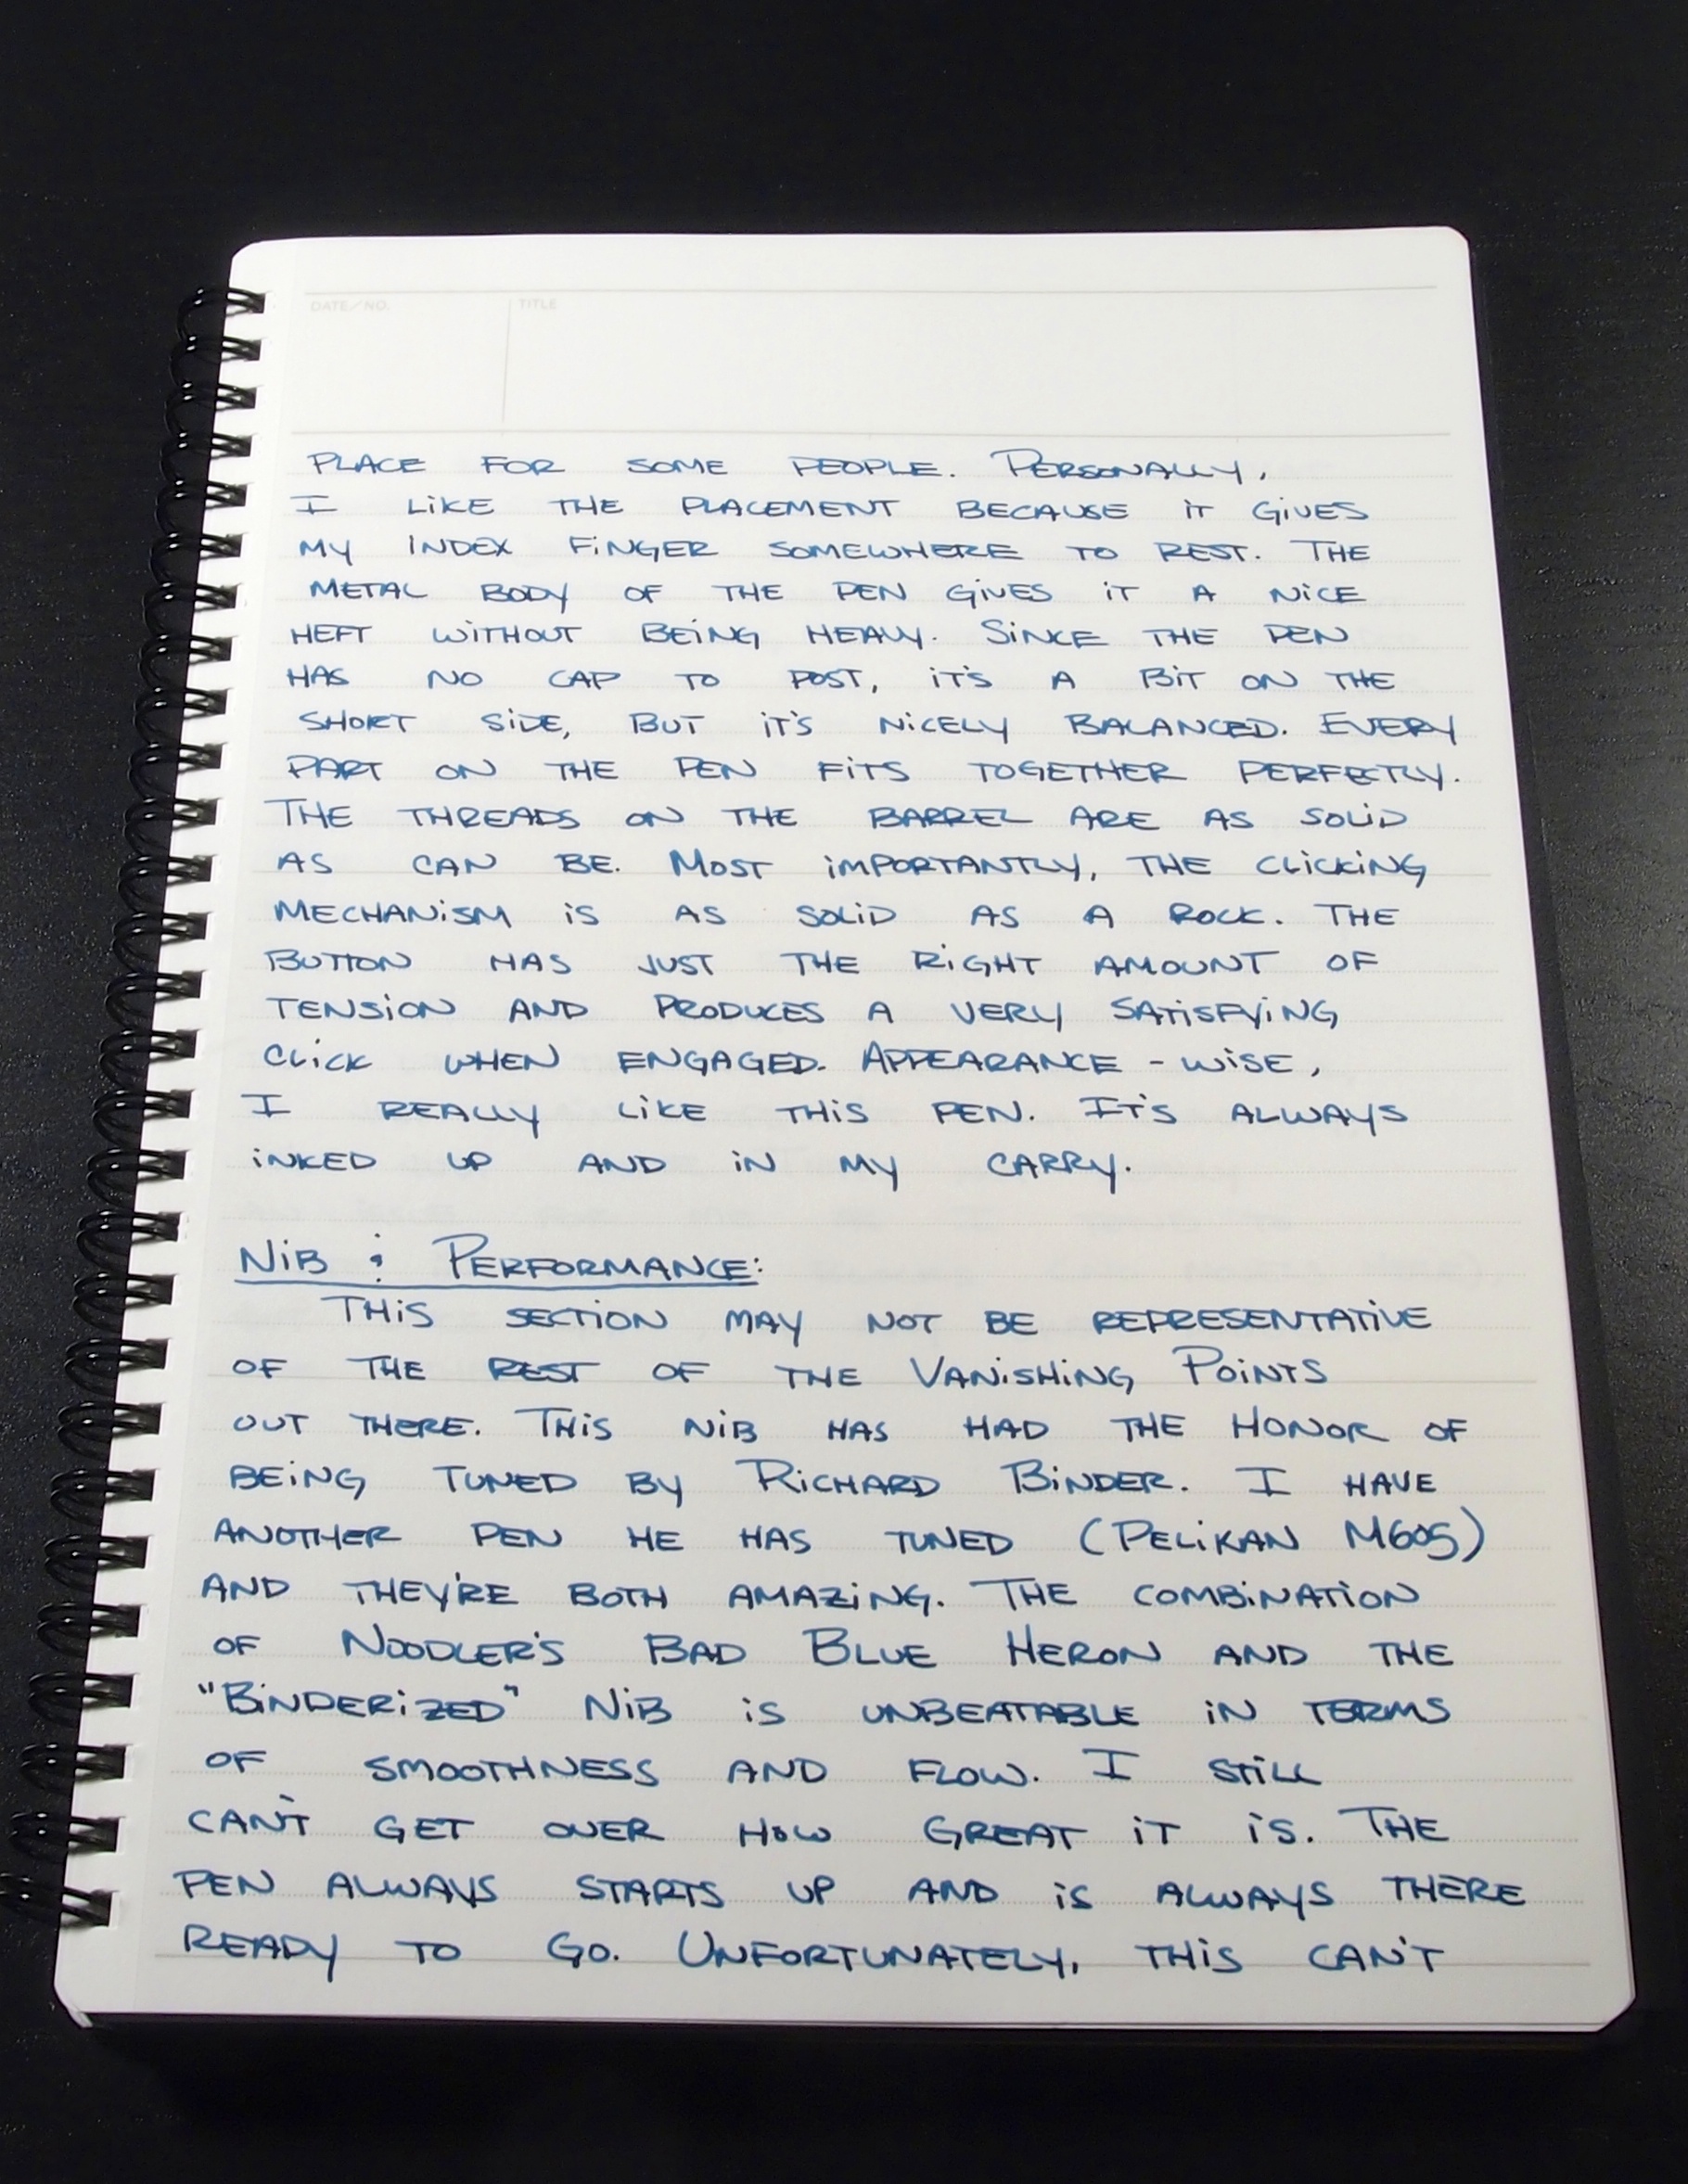 DATE/NO. TITLE
PLACE FOR SOME PEOPLE. PERSONALLY,
I LIKE THE PLACEMENT BECAUSE IT GIVES
MY INDEX FINGER SOMEWHERE TO REST. THE
METAL BODY OF THE PEN GIVES IT A NICE
HEFT WITHOUT BEING HEAVY. SINCE THE PEN
HAS NO CAP TO POST, IT'S A BIT ON THE
SHORT SIDE, BUT IT'S NICELY BALANCED. EVERY
PART ON THE PEN FITS TOGETHER PERFECTLY.
THE THREADS ON THE BARREL ARE AS SOLID
AS CAN BE. MOST IMPORTANTLY, THE CLICKING
MECHANISM IS AS SOLID AS A ROCK. THE
BUTTON HAS JUST THE RIGHT AMOUNT OF
TENSION AND PRODUCES A VERY SATISFYING
CLICK WHEN ENGAGED. APPEARANCE-WISE,
I REALLY LIKE THIS PEN. IT'S ALWAYS
INKED UP AND IN MY CARRY.
NIB & PERFORMANCE:
THIS SECTION MAY NOT BE REPRESENTATIVE
OF THE REST OF THE VANISHING POINTS
OUT THERE. THIS NIB HAS HAD THE HONOR OF
BEING TUNED BY RICHARD BINDER. I HAVE
ANOTHER PEN HE HAS TUNED (PELIKAN M605)
AND THEY'RE BOTH AMAZING. THE COMBINATION
OF NOODLER'S BAD BLUE HERON AND THE
"BINDERIZED" NIB IS UNBEATABLE IN TERMS
OF SMOOTHNESS AND FLOW. I STILL
CAN'T GET OVER HOW GREAT IT IS. THE
PEN ALWAYS STARTS UP AND IS ALWAYS THERE
READY TO GO. UNFORTUNATELY, THIS CAN'T